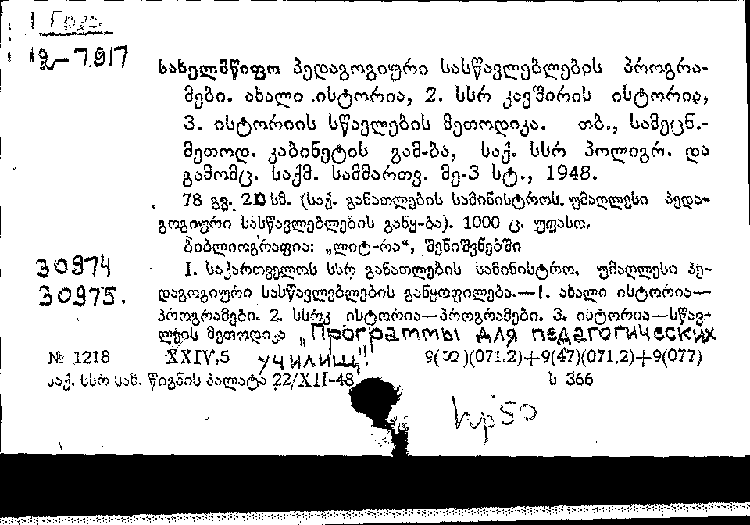 1 Груз.
19-7917
სახელმწიფო პედაგოგიური სასწავლებლების პროგრა-
მები. ახალი ისტორია, 2. სსრ კავშირის ისტორია,
3. ისტორიის სწავლების მეთოდიკა. თბ., სამეცნ.-
მეთოდ. კაბინეტის გამ-ბა, საქ. სსრ პოლიგრ. და
გამომც. საქმ. სამმართვ. მე-3 სტ., 1948.
78 გვ. 20 სმ. (საქ. განათლების სამინისტროს. უმაღლესი პედა-
გოგიური სასწავლებლების განყ-ბა). 1000 ც. უფასო.
ბიბლიოგრაფია: „ლიტ-რა“, შენიშვნებში
30974
30975.
I. საქართველოს სსრ განათლების სამინისტრო, უმაღლესი პე-
დაგოგიური სასწავლებლების განყოფილება.—1. ახალი ისტორია—
პროგრამები. 2. სსრკ ისტორია—პროგრამები. 3. ისტორია—სწავ-
ლების მეთოდიკა „Программы для педагогических
училищ".
№ 1218 XXIV,5 9( )(071,2)+9(47)(071,2)+9(077)
საქ. სსრ სახ. წიგნის პალატა 22/XII-48 ს 366